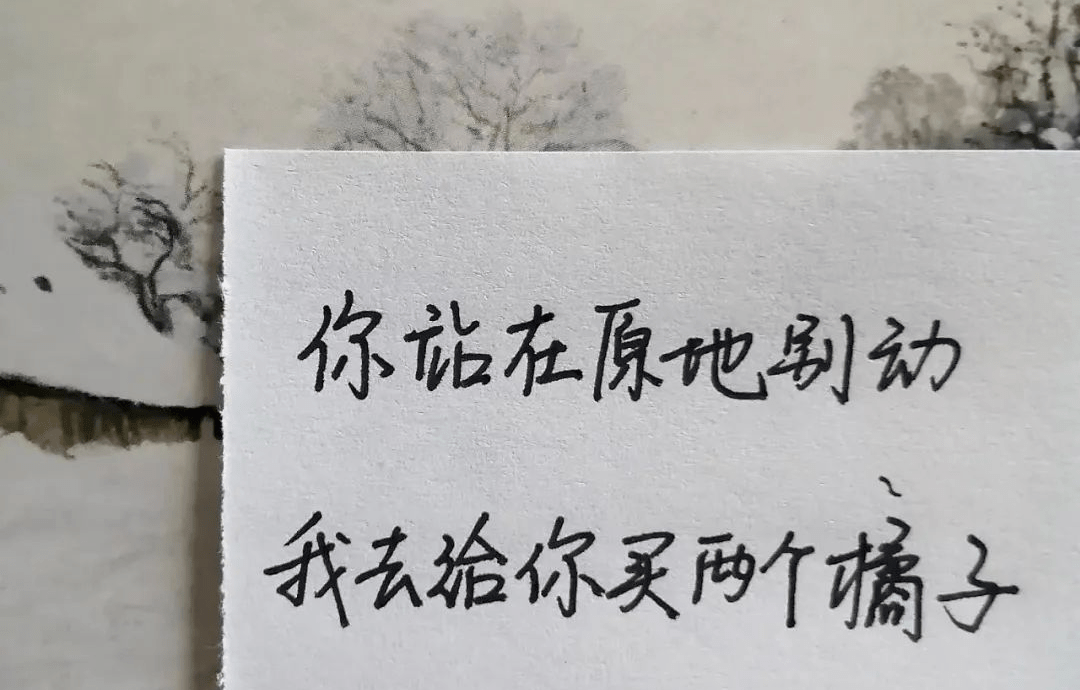 你站在原地别动
我去给你买两个橘子